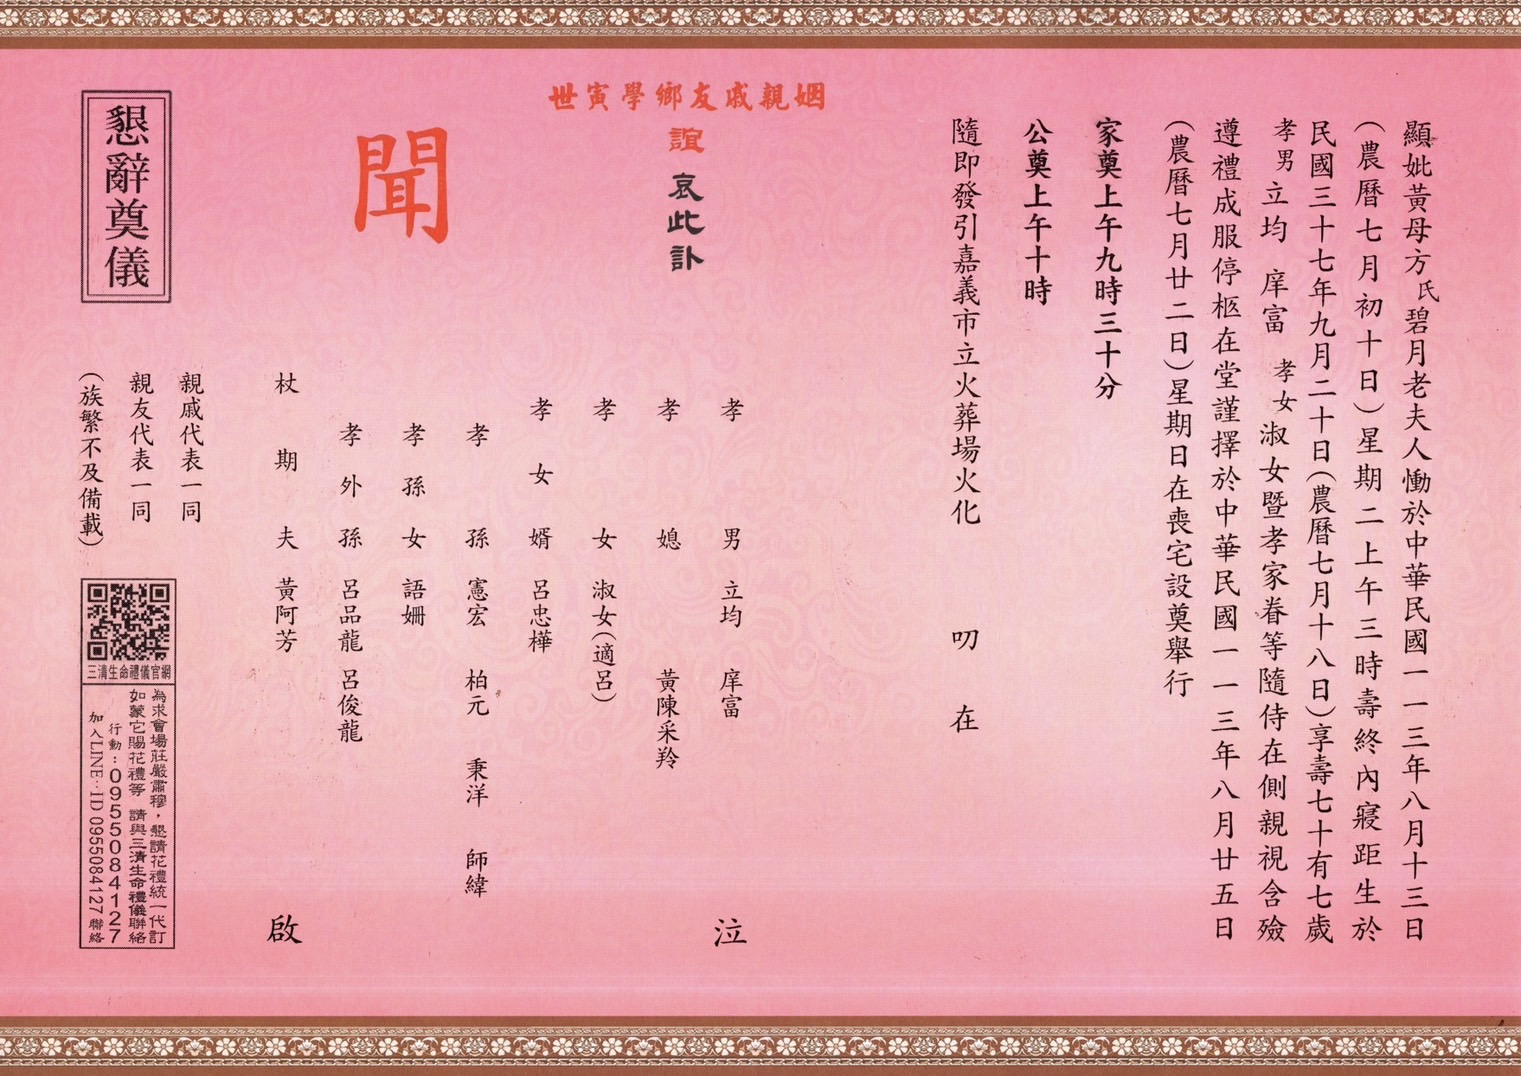 顯妣黃母方氏碧月老夫人慟於中華民國一一三年八月十三日
(農曆七月初十日)星期二上午三時壽終內寢距生於
民國三十七年九月二十日(農曆七月十八日)享壽七十有七歲
孝男立均 庠富 孝女淑女暨孝家眷等隨侍在側親視含殮
遵禮成服停柩在堂謹擇於中華民國一一三年八月廿五日
(農曆七月廿二日)星期日在喪宅設奠舉行
家奠上午九時三十分
公奠上午十時
隨即發引嘉義市立火葬場火化 叨在
姻親戚友鄉學寅世
誼 哀此訃
聞
孝男 立均 庠富 泣
孝媳 黃陳采羚
孝女 淑女(適呂)
孝女婿 呂忠樺
孝孫 憲宏 柏元 秉洋 師緯
孝孫女 語姍
孝外孫 呂品龍 呂俊龍
杖期夫 黃阿芳 啟
親戚代表一同
親友代表一同
(族繁不及備載)
懇辭奠儀
三清生命禮儀官網
為求會場莊嚴肅穆，懇請花禮統一代訂
如蒙它賜花禮等 請與三清生命禮儀聯絡
行動：0955084127
加入LINE：ID 0955084127 聯絡